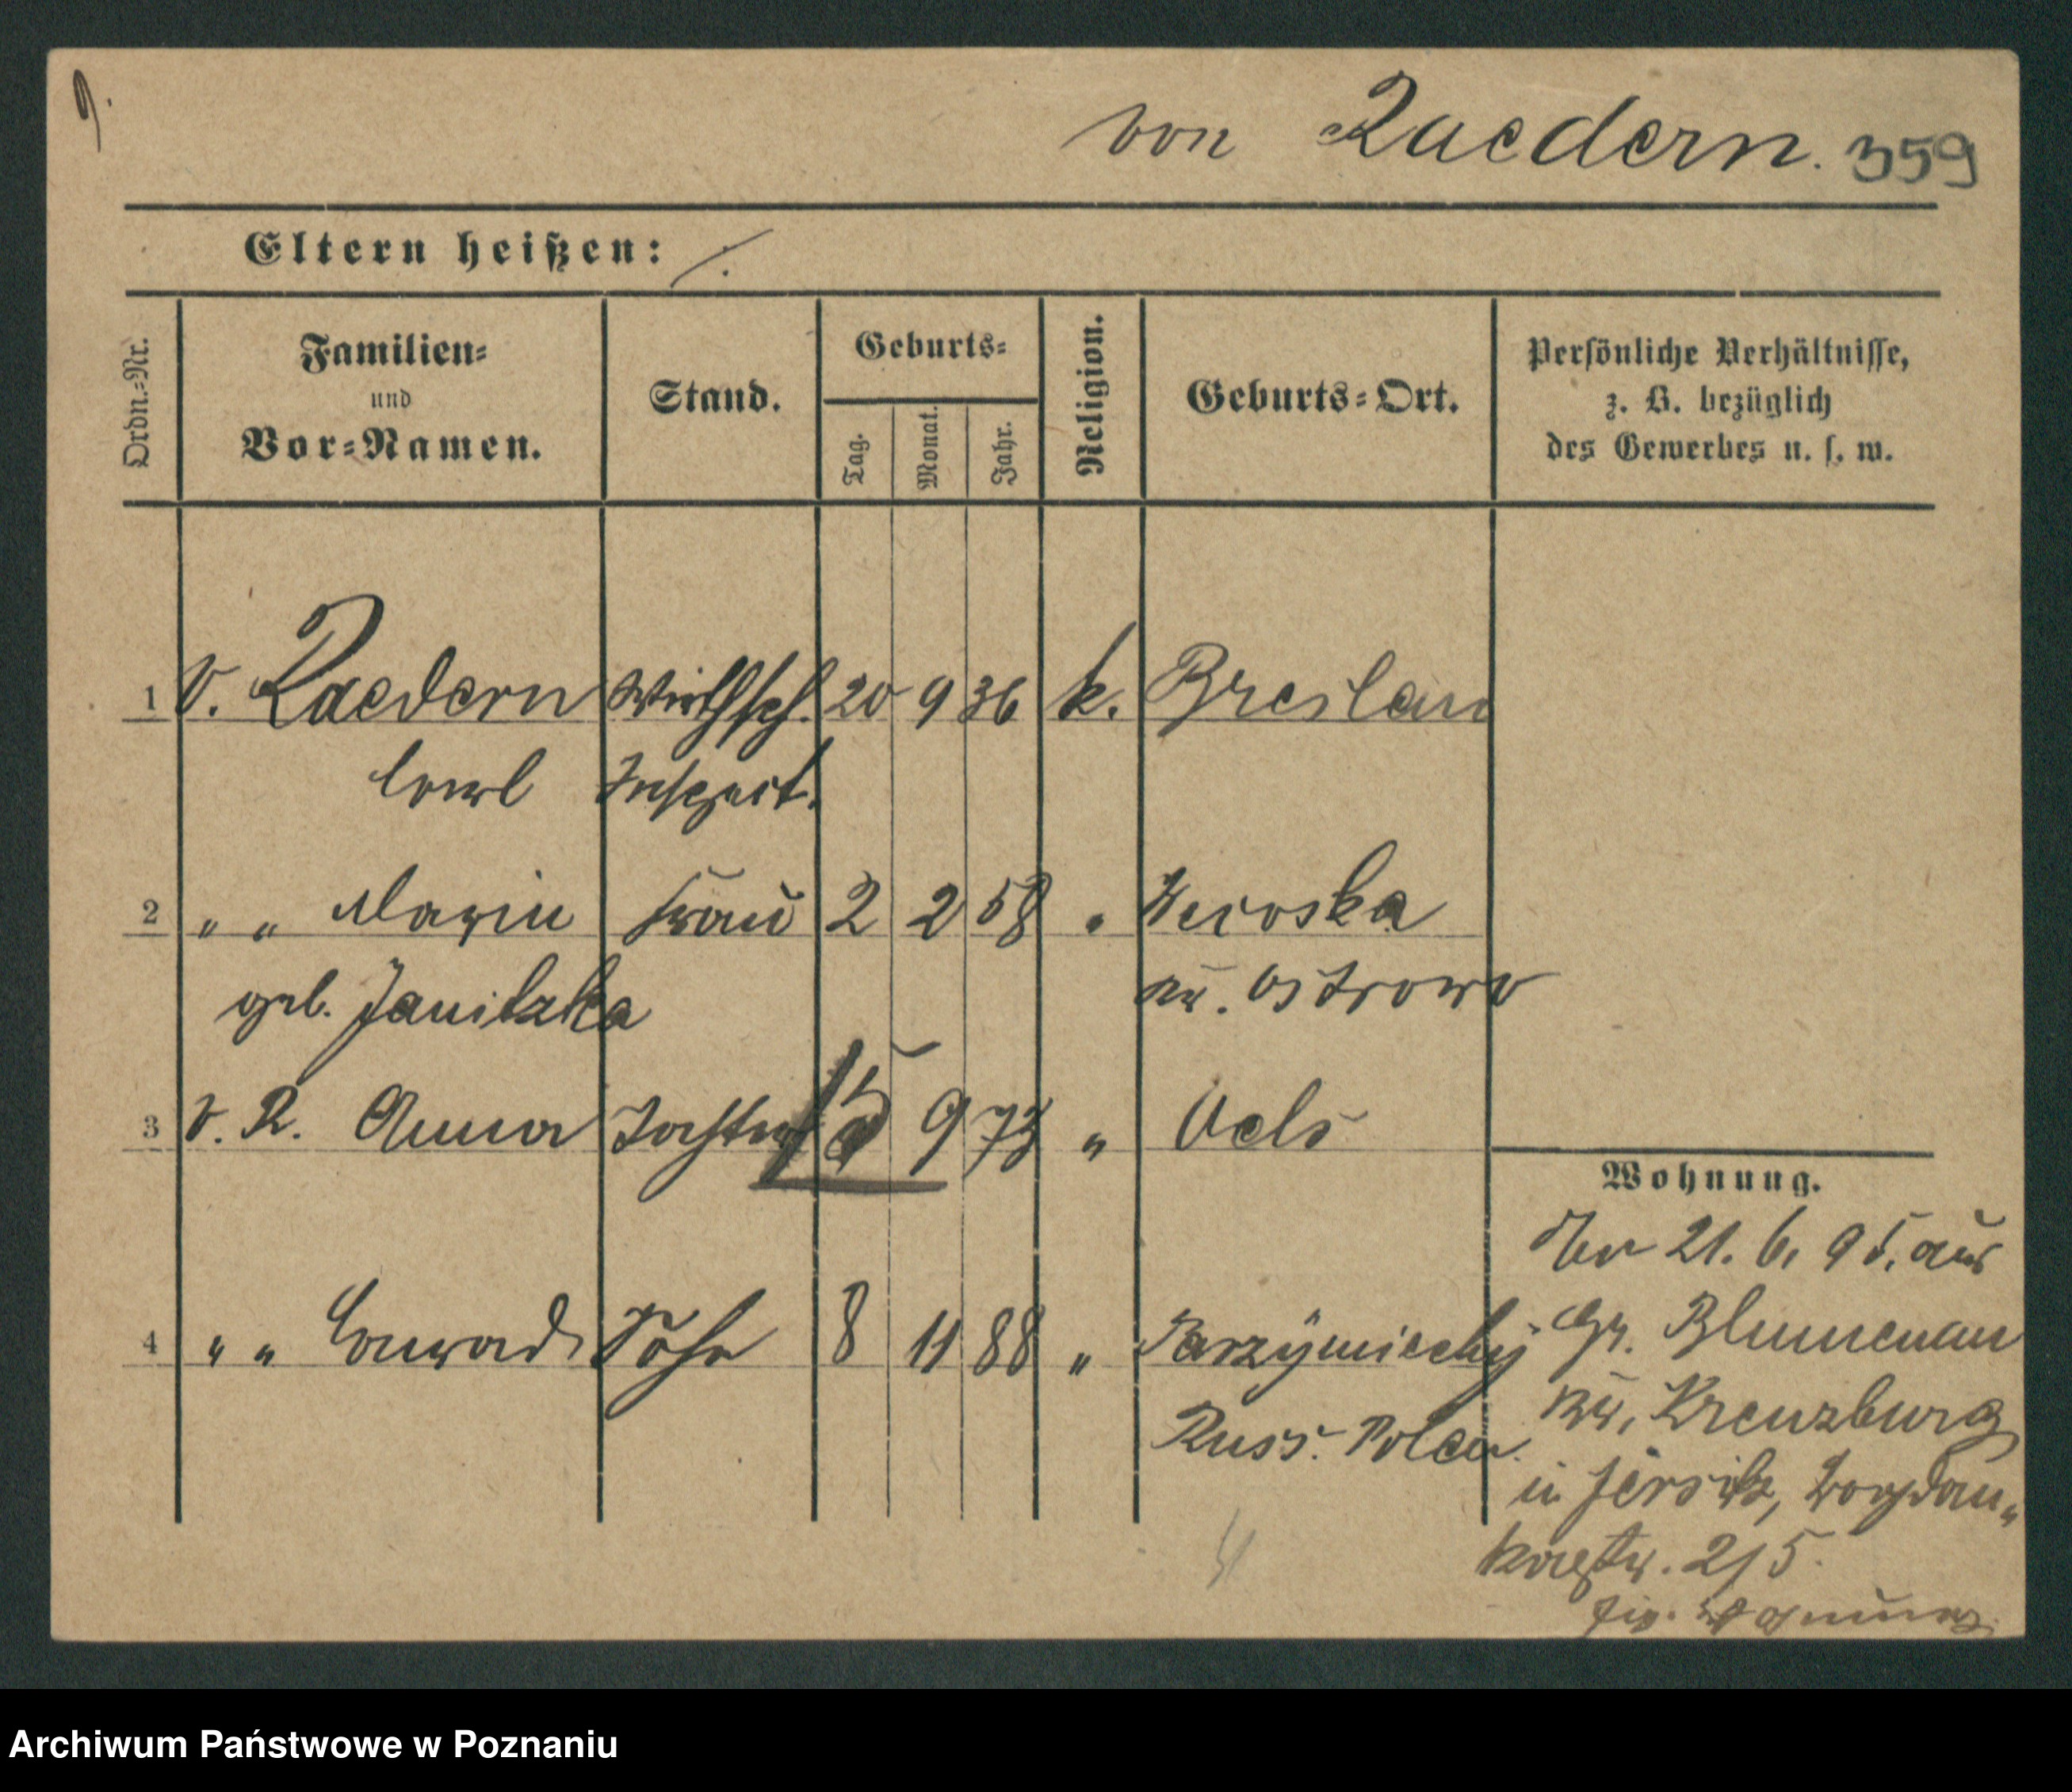 9.
von Raedern. 359
Eltern heißen: ./.
Ordn.-Nr.
Familien-
und
Vor-Namen.
Stand.
Geburts-
Tag.
Monat.
Jahr.
Religion.
Geburts-Ort.
Persönliche Verhältnisse,
z. B. bezüglich
des Gewerbes u. s. w.
1 v. Raedern Wirthsch. 20 9 36 k. Breslau
Carl Inspect.
2 " " Marie Frau 2 2 58 "
geb. Janitzka Kr. Ostrowo
3 v. R. Anna Tochter 15 9 73 " Oels
Wohnung.
21. 6. 95. aus
4 " " Conrad Sohn 8 11 88 "
Gr. Blumenau
Russ. Polen.
Kr. Kreuzburg
in Jersitz, Bogdan-
kastr. 2/5.